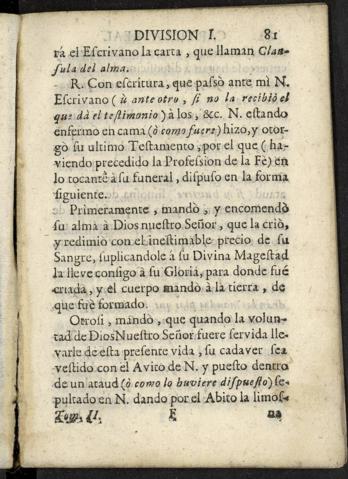 DIVISION I. 81
rá el Escrivano la carta, que llaman Clau-
sula del alma.
R. Con escritura, que passò ante mì N.
Escrivano (ù ante otro, si no la recibiò el
que dà el testimonio) à los, &c. N. estando
enfermo en cama (ò como fuere) hizo, y otor-
gò su ultimo Testamento, por el que (ha-
viendo precedido la Profession de la Fè) en
lo tocante à su funeral, dispuso en la forma
siguiente.
Primeramente, mandò, y encomendò
su alma à Dios nuestro Señor, que la criò,
y redimiò con el inestimable precio de su
Sangre, suplicandole à su Divina Magestad
la lleve consigo à su Gloria, para donde fué
criada, y el cuerpo mandò à la tierra, de
que fuè formado.
Otrosi, mandò, que quando la volun-
tad de Dios Nuestro Señor fuere servida lle-
varle de esta presente vida, su cadaver sea
vestido con el Avito de N. y puesto dentro
de un ataud (ò como lo huviere dispuesto) se-
pultado en N. dando por el Abito la limos-
Tom. II. F na